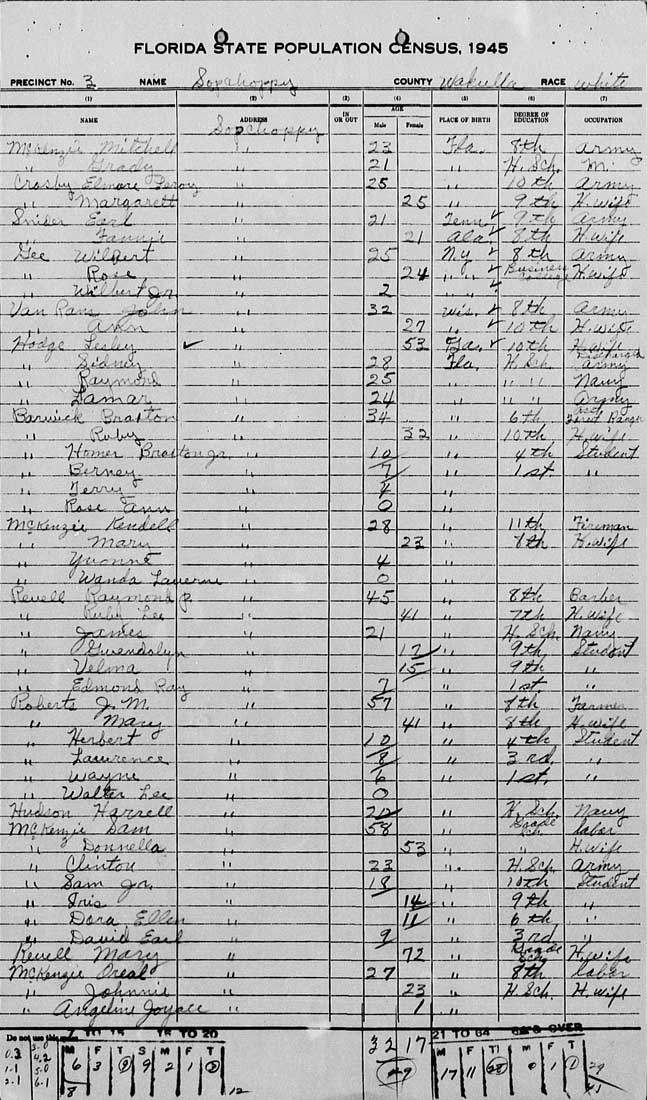 FLORIDA STATE POPULATION CENSUS, 1945
PRECINCT No. 3 NAME Sopahoppy COUNTY Wakulla RACE White
(1) (2) (3) (4) (5) (6) (7)
NAME ADDRESS IN OR OUT AGE Male Female PLACE OF BIRTH DEGREE OF EDUCATION OCCUPATION
Sopchoppy
McKenzie Mitchell " 23 Fla. 8th Army
" Grady " 21 " H. Sch. M.
Crosby Elmore Leroy " 25 " 10th Army
" Margarett " 25 " 9th H. Wife
Snider Earl " 21 Tenn ✓ 9th Army
" Fannie " 21 Ala. ✓ 8th H. Wife
Gee Wilbert " 25 N.y. ✓ 8th Army
" Rose " 24 " ✓ Business College H. Wife
" Wilbert Jr. " 2 " ✓
Van Rans John " 32 Wis. ✓ 8th Army
" Ann " 27 " ✓ 10th H. Wife
Hodge Lesley ✓ " 53 Ga. ✓ 10th H. Wife
" Sidney " 28 Fla. H. Sch. Discharged Army
" Raymond " 25 " " " Navy
" Lamar " 24 " " " Army
Barwick Braxton " 34 " 6th Forest Ranger
" Ruby " 32 " 10th H. Wife
" Homer Braxton Jr. " 10 " 4th Student
" Berney " 7 " 1st "
" Terry " 4 "
" Rose Ann " 0 "
McKenzie Kendell " 28 " 11th Fireman
" Mary " 23 " 8th H. Wife
" Yvonne " 4 "
" Wanda Laverne " 0 "
Revell Raymond P. " 45 " 8th Barber
" Ruby Lee " 41 " 7th H. Wife
" James " 21 " H. Sch. Navy
" Gwendolyn " 17 " 9th Student
" Velma " 15 " 9th "
" Edmond Ray " 7 " 1st "
Roberts J. M. " 57 " 8th Farmer
" Mary " 41 " 8th H. Wife
" Herbert " 10 " 4th Student
" Lawrence " 8 " 3rd. "
" Wayne " 6 " 1st. "
" Walter Lee " 0 "
Hudson Harrell " 20 " H. Sch. Navy
McKenzie Sam " 58 " Grade Sch. labor
" Donnella " 53 " " H. Wife
" Clinton " 23 " H. Sch. Army
" Sam Jr. " 18 " 10th Student
" Iris " 14 " 9th "
" Dora Ellen " 11 " 6th "
" David Earl " 9 " 3rd "
Revell Mary " 72 " Grade Sch. H. Wife
McKenzie Oreal " 27 " 8th labor
" Johnnie " 23 " H. Sch. H. Wife
" Angeline Joyace " 1 "
Do not use this space 7 TO 15 16 TO 20 32 17 21 TO 64 65 & OVER
0.3 5-0 M F T S M F T 49 M F T M F T 29
1-1 4.2 6 3 9 9 2 1 3 17 11 28 0 1 1
2-1 5-0 6-1 8 12 41